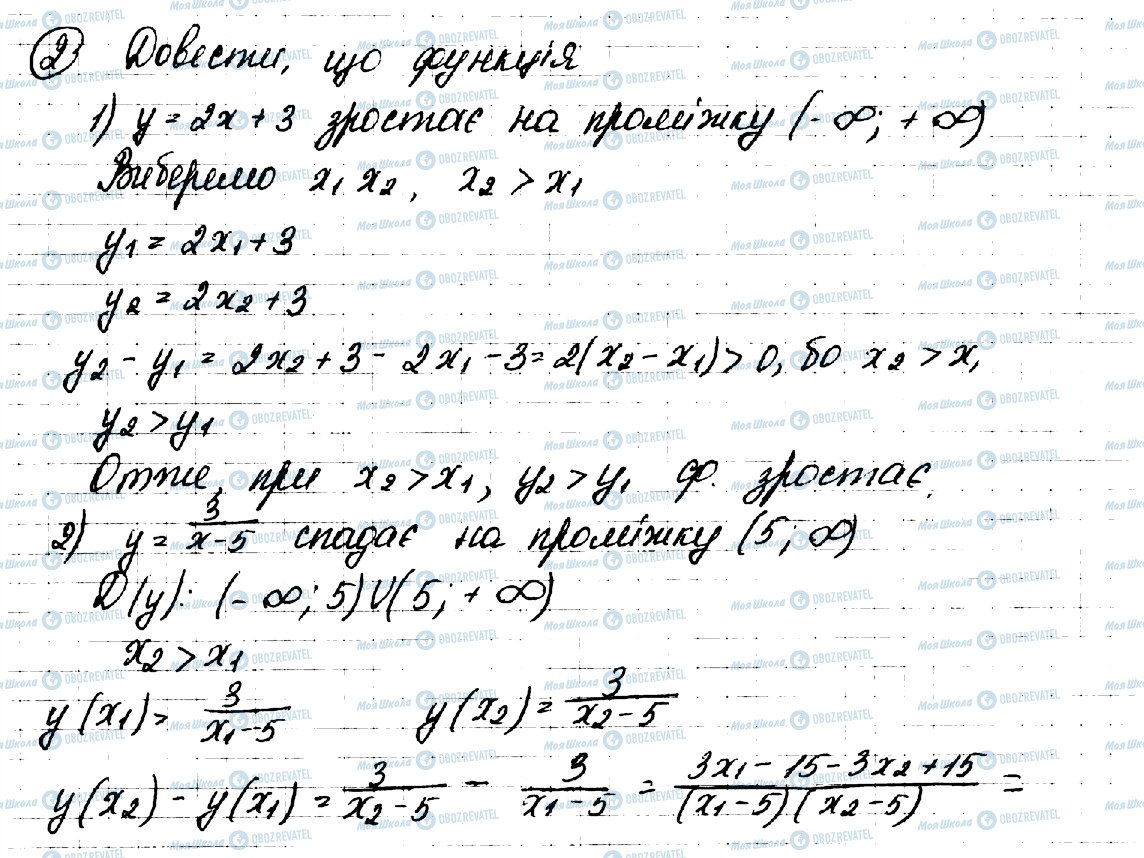 2) Довести, що функція
1) y = 2x + 3 зростає на проміжку (- ∞; + ∞)
Виберемо x₁ x₂, x₂ > x₁
y₁ = 2x₁ + 3
y₂ = 2x₂ + 3
y₂ - y₁ = 2x₂ + 3 - 2x₁ - 3 = 2(x₂ - x₁) > 0, бо x₂ > x₁
y₂ > y₁
Отже, при x₂ > x₁, y₂ > y₁ ф. зростає.
2) y = 3/(x - 5) спадає на проміжку (5; ∞)
D(y): (- ∞; 5) U (5; + ∞)
x₂ > x₁
y(x₁) = 3/(x₁ - 5) y(x₂) = 3/(x₂ - 5)
y(x₂) - y(x₁) = 3/(x₂ - 5) - 3/(x₁ - 5) = (3x₁ - 15 - 3x₂ + 15)/((x₁ - 5)(x₂ - 5)) =
Моя Школа OBOZREVATEL